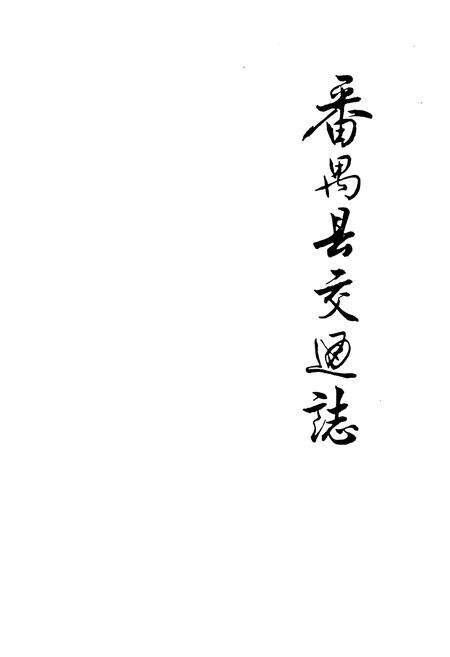 番禺县交通誌